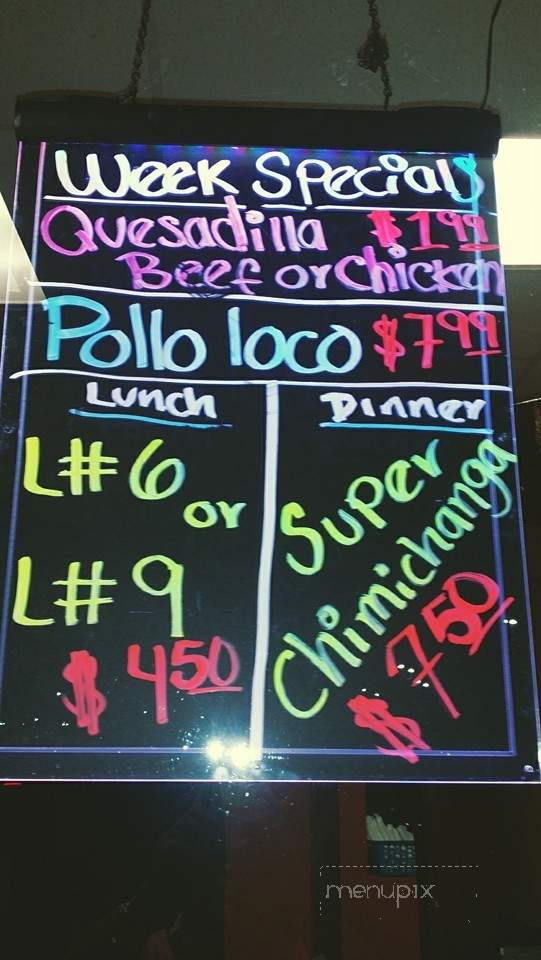 Week Specials
Quesadilla $1.99
Beef or Chicken
Pollo loco $7.99
Lunch
L#6
or
L#9
$4.50
Dinner
Super
Chimichanga
$7.50
menupix